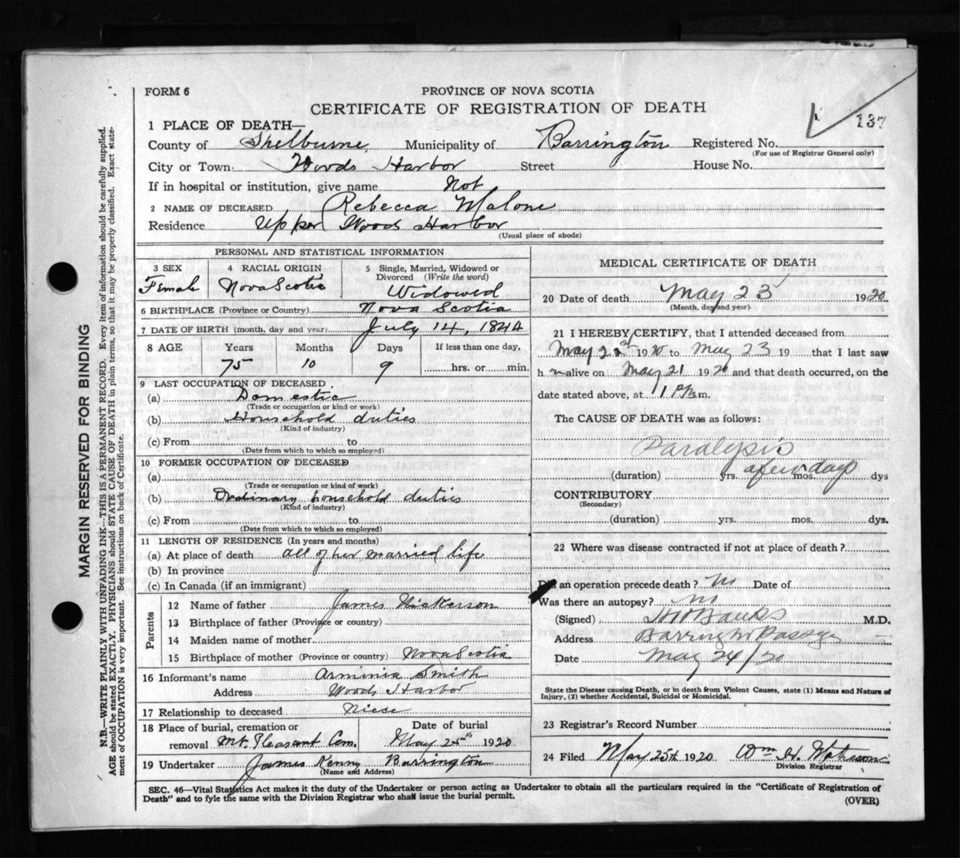 FORM 6
PROVINCE OF NOVA SCOTIA
137
CERTIFICATE OF REGISTRATION OF DEATH
1 PLACE OF DEATH—
County of Shelburne Municipality of Barrington Registered No.
(For use of Registrar General only)
City or Town Woods Harbor Street House No.
If in hospital or institution, give name Not
2 NAME OF DECEASED Rebecca Malone
Residence Upper Woods Harbor
(Usual place of abode)
PERSONAL AND STATISTICAL INFORMATION
3 SEX
Female
4 RACIAL ORIGIN
Nova Scotia
5 Single, Married, Widowed or
Divorced (Write the word)
Widowed
6 BIRTHPLACE (Province or Country) Nova Scotia
7 DATE OF BIRTH (month, day and year) July 14, 1844
8 AGE Years Months Days If less than one day,
75 10 9 hrs. or min.
9 LAST OCCUPATION OF DECEASED
(a) Domestic
(Trade or occupation or kind or work)
(b) Household duties
(Kind of industry)
(c) From to
(Date from which to which so employed)
10 FORMER OCCUPATION OF DECEASED
(a)
(Trade or occupation or kind of work)
(b) Ordinary household duties
(Kind of industry)
(c) From to
(Date from which to which so employed)
11 LENGTH OF RESIDENCE (In years and months)
(a) At place of death all of her married life
(b) In province
(c) In Canada (if an immigrant)
Parents
12 Name of father James Nickerson
13 Birthplace of father (Province or country)
14 Maiden name of mother
15 Birthplace of mother (Province or country) Nova Scotia
16 Informant's name Arminia Smith
Address Woods Harbor
17 Relationship to deceased Niese
18 Place of burial, cremation or Date of burial
removal Mt. Pleasant Cem. May 25th 1920
19 Undertaker James Kenny Barrington
(Name and Address)
MEDICAL CERTIFICATE OF DEATH
20 Date of death May 23 1920
(Month, day and year)
21 I HEREBY CERTIFY, that I attended deceased from
May 1920 to May 23 19 that I last saw
h alive on May 21 1920 and that death occurred, on the
date stated above, at 1 PM m.
The CAUSE OF DEATH was as follows:
Paralysis
(duration) yrs. a few days mos. dys
CONTRIBUTORY
(Secondary)
(duration) yrs. mos. dys.
22 Where was disease contracted if not at place of death?
Did an operation precede death? No Date of
Was there an autopsy? No
(Signed) Banks M.D.
Address Barrington Passage
Date May 24/20
State the Disease causing Death, or in death from Violent Causes, state (1) Means and Nature of
Injury, (2) whether Accidental, Suicidal or Homicidal.
23 Registrar's Record Number
24 Filed May 25th 1920 Wm H.
Division Registrar
SEC. 46—Vital Statistics Act makes it the duty of the Undertaker or person acting as Undertaker to obtain all the particulars required in the "Certificate of Registration of
Death" and to fyle the same with the Division Registrar who shall issue the burial permit.
(OVER)
MARGIN RESERVED FOR BINDING
N.B.—WRITE PLAINLY WITH UNFADING INK—THIS IS A PERMANENT RECORD. Every item of information should be carefully supplied.
AGE should be stated EXACTLY. PHYSICIANS should STATE CAUSE OF DEATH in plain terms, so that it may be properly classified. Exact state-
ment of OCCUPATION is very important. See instructions on back of Certificate.